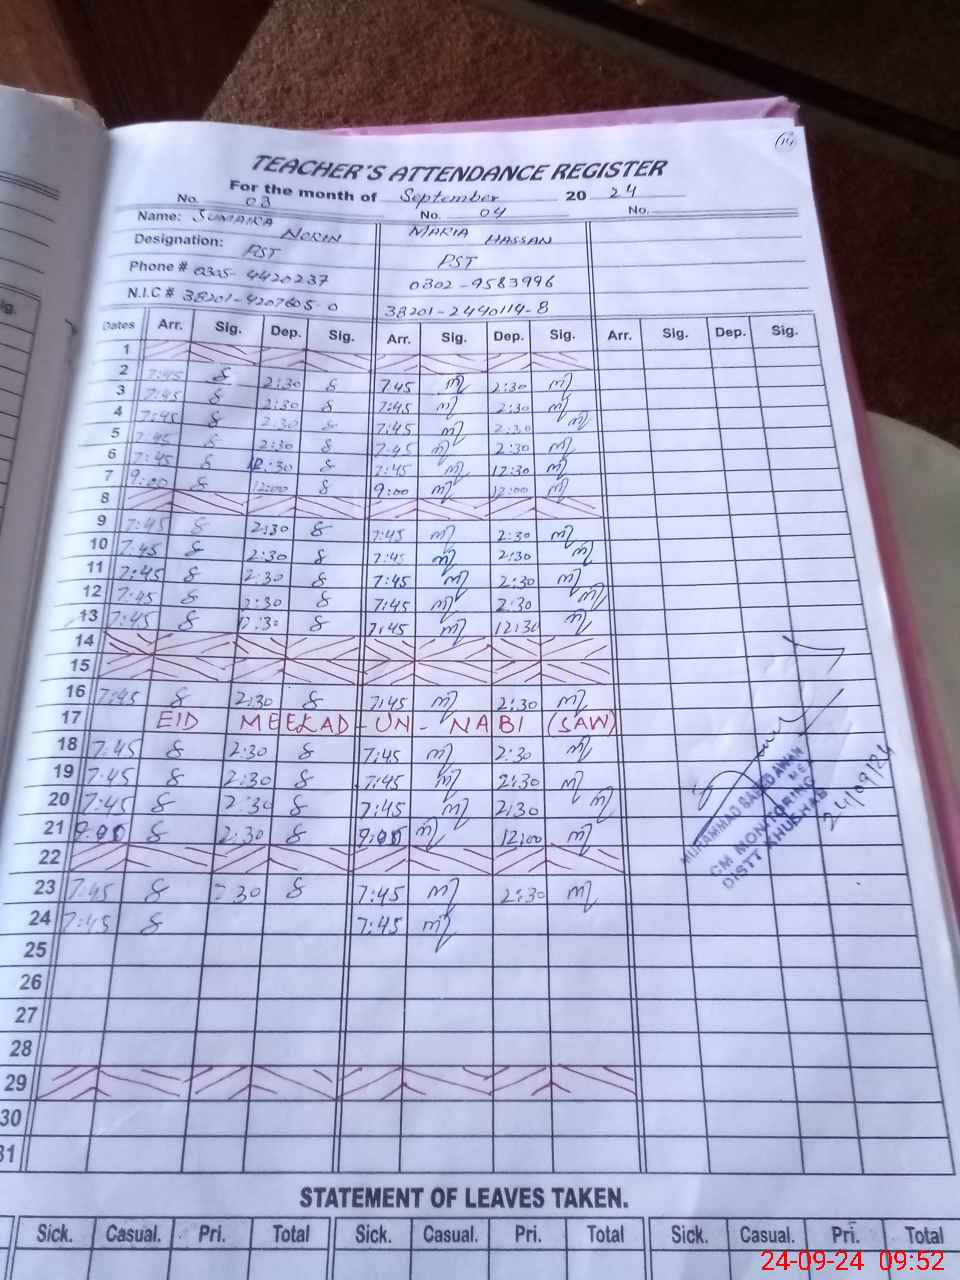 14
TEACHER'S ATTENDANCE REGISTER
For the month of September 2024
No. 03 No. 04 No.
Name: SUMAIRA NORIN MARIA HASSAN
Designation: PST PST
Phone # 0305-4420237 0302-9583996
N.I.C # 38201-4207605-0 38201-2440114-8
Dates Arr. Sig. Dep. Sig. Arr. Sig. Dep. Sig. Arr. Sig. Dep. Sig.
1
2 7:45 2:30 7:45 2:30
3 7:45 2:30 7:45 2:30
4 7:45 2:30 7:45 2:30
5 7:45 2:30 7:45 2:30
6 7:45 12:30 7:45 12:30
7 9:00 12:00 9:00 12:00
8
9 7:45 2:30 7:45 2:30
10 7:45 2:30 7:45 2:30
11 7:45 2:30 7:45 2:30
12 7:45 2:30 7:45 2:30
13 7:45 12:30 7:45 12:30
14
15
16 7:45 2:30 7:45 2:30
17 EID MEELAD-UN-NABI (SAW)
18 7:45 2:30 7:45 2:30
19 7:45 2:30 7:45 2:30
20 7:45 2:30 7:45 2:30
21 9:00 2:30 9:00 12:00
22
23 7:45 2:30 7:45 2:30
24 7:45 7:45
25
26
27
28
29
30
31
MUHAMMAD SAEED AWAN
MEA
CM MONITORING
DISTT KHUSHAB
24/09/24
STATEMENT OF LEAVES TAKEN.
Sick. Casual. Pri. Total Sick. Casual. Pri. Total Sick. Casual. Pri. Total
24-09-24 09:52